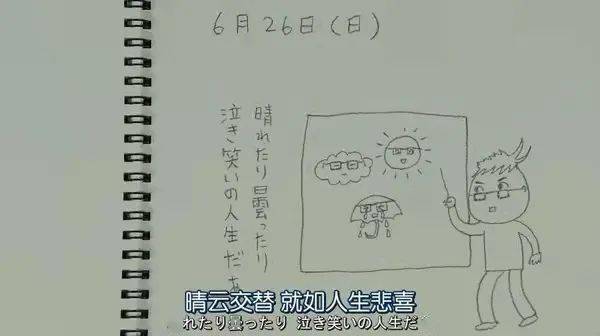 6月26日(日)
晴れたり曇ったり
泣き笑いの人生だぁ
晴云交替 就如人生悲喜
れたり曇ったり 泣き笑いの人生だ